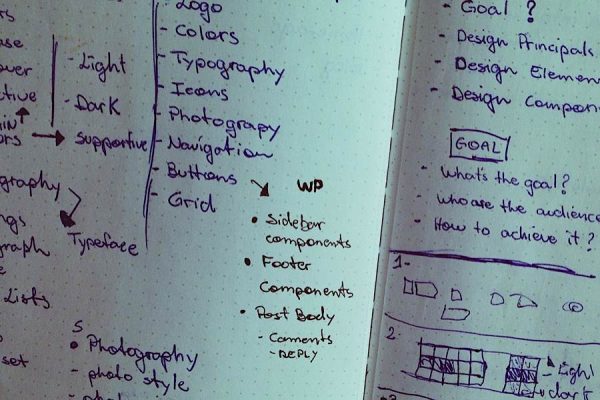 ctive
ors
- Light
- Dark
supportive
Typeface
Lists
set
Logo
- Colors
- Typography
- Icons
- Photograpy
- Navigation
- Buttons
- Grid
WP
• Sidebar
components
• Footer
Components
• Post Body
- Coments
- REPLY
5
• Photography
- photo style
- Goal ?
- Design Principals
- Design Elemen
- Design Compon
GOAL
- What's the goal?
- who are the audience
- How to achieve it?
1-
2-
- Light
dark